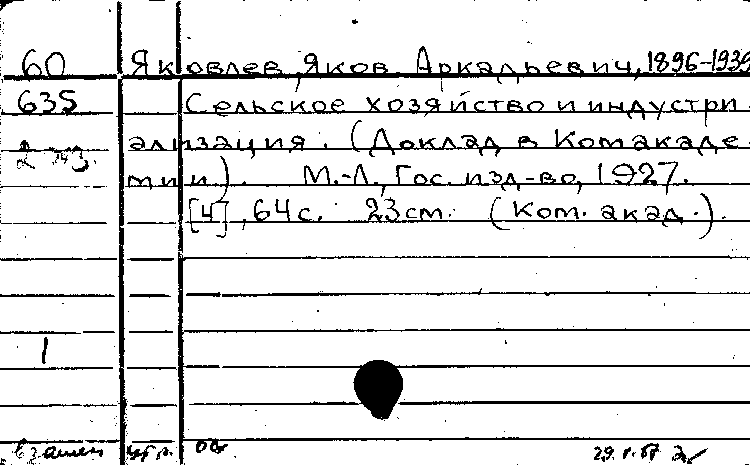 60 Яковлев, Яков Аркадьевич, 1896-1939
635 Сельское хозяйство и индустри
2 экз. ализация. (Доклад в Комакаде
мии). М.-Л., Гос. изд-во, 1927.
[4], 64 с. 23 см. (Ком. акад.).
1
взамен